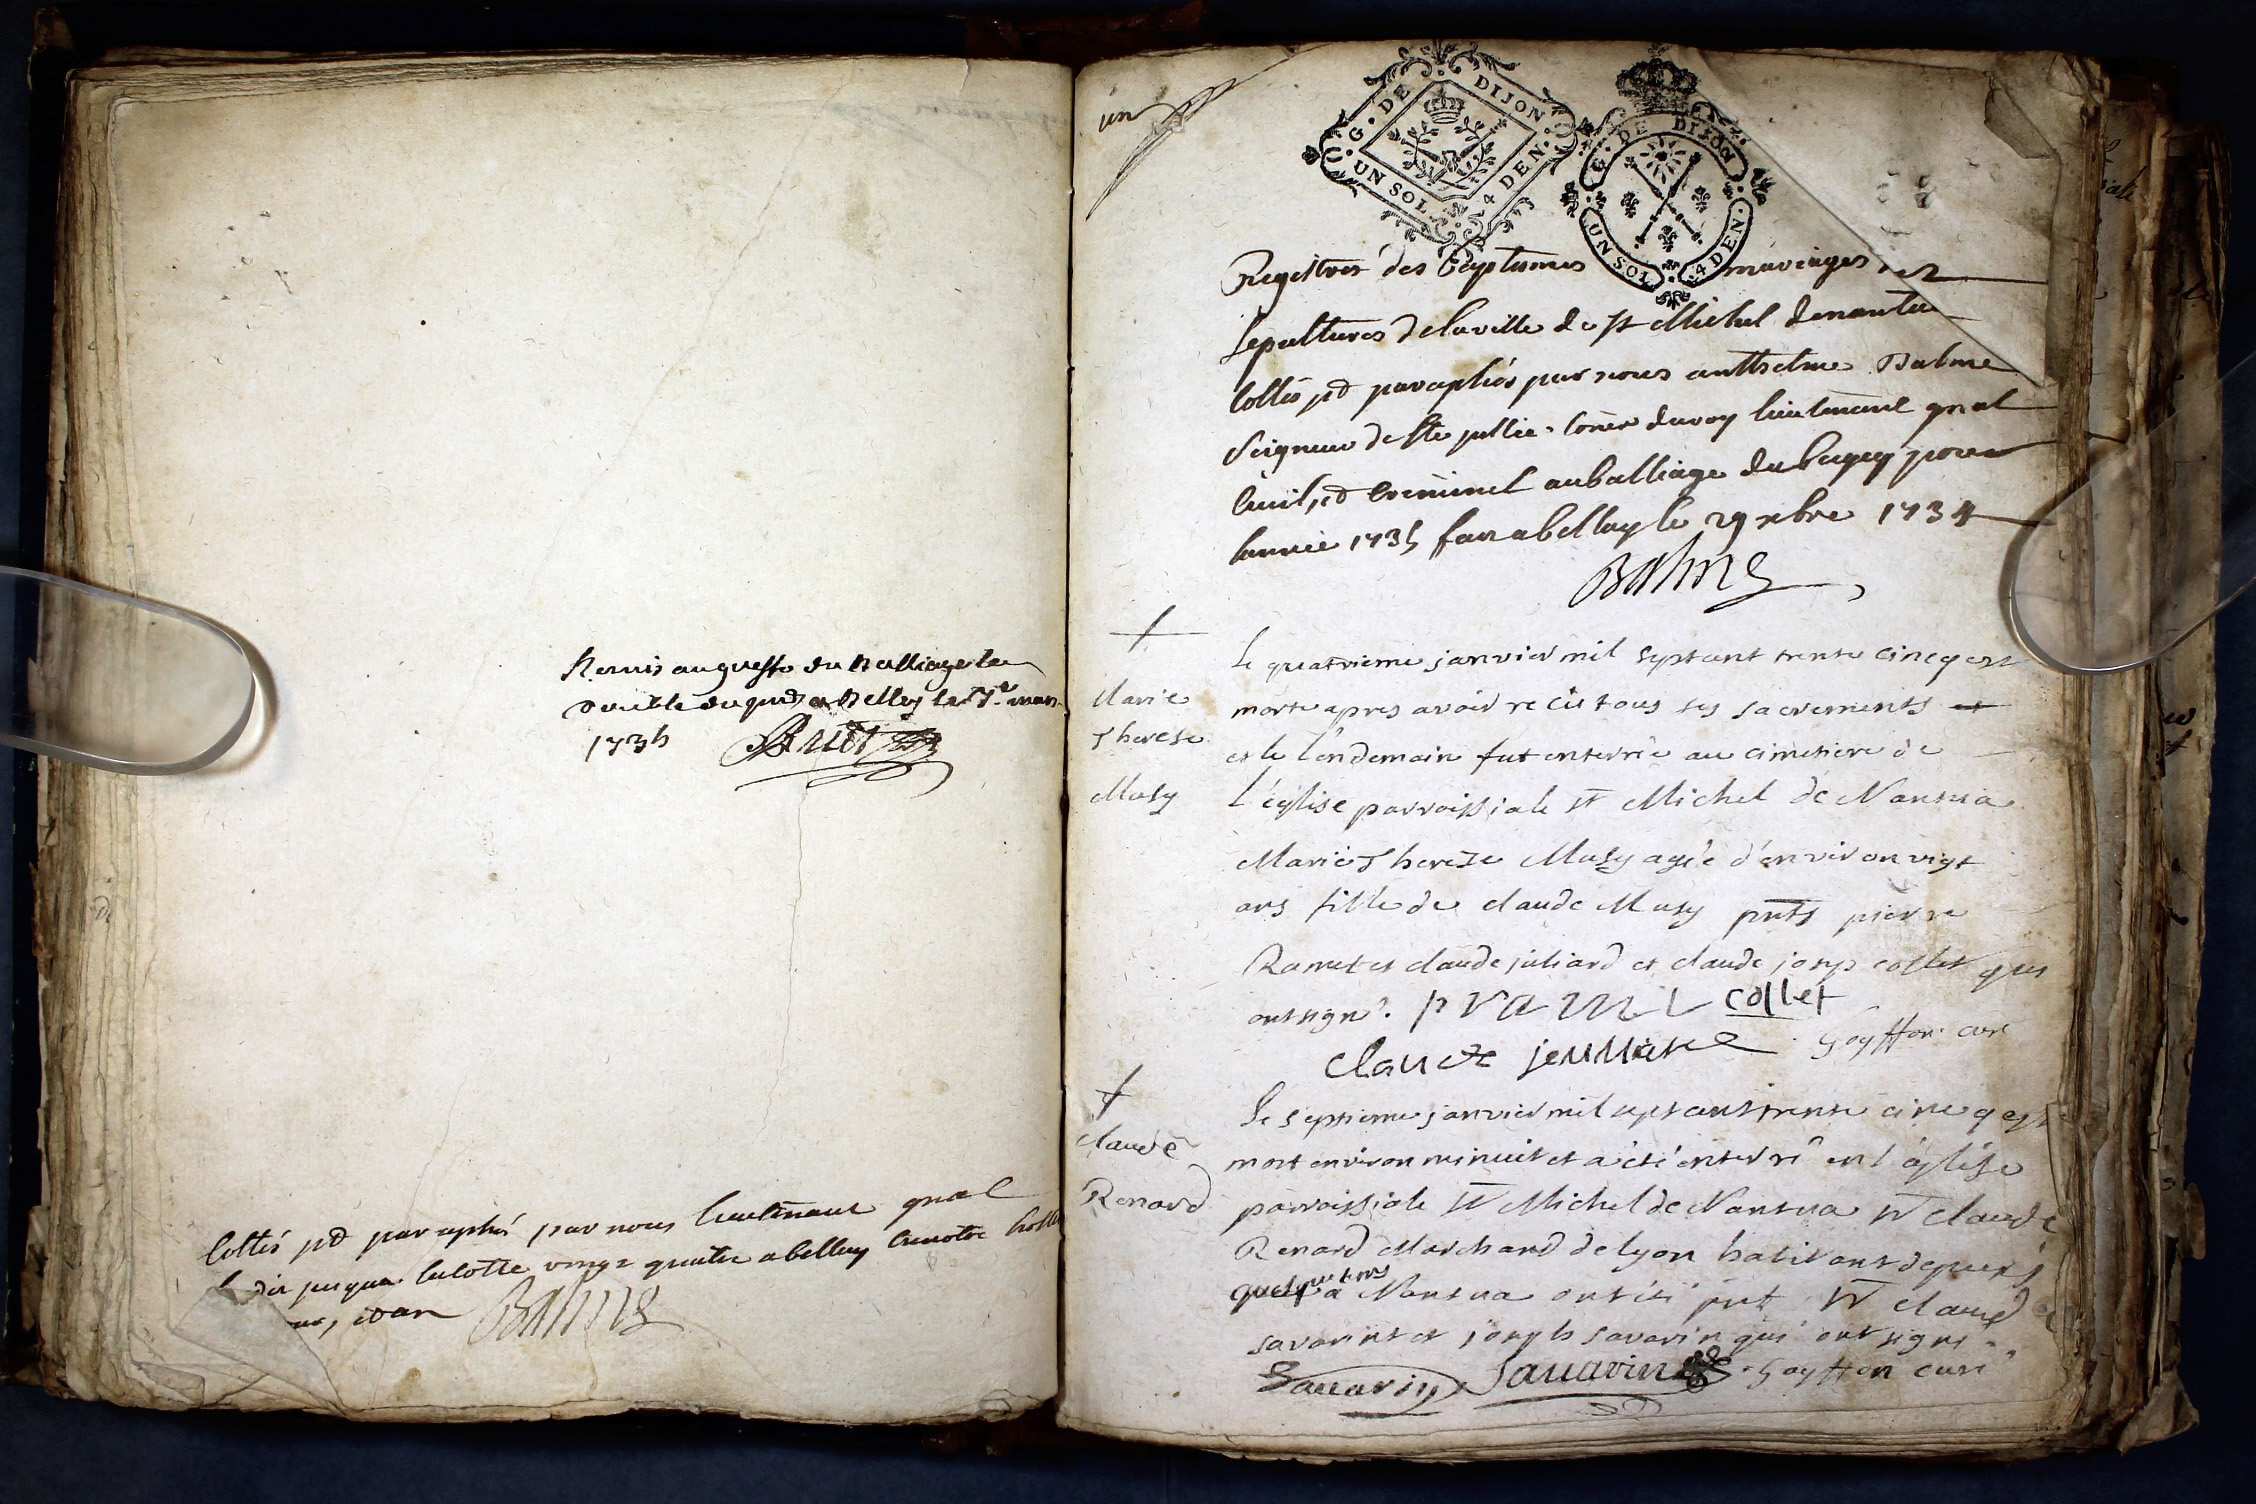 Remis au greffe du Balliage le
double du pnt a Belley le mars
1735
Cottés et paraphés par nous lieutenant gnal
jusqua la cotte vingt quatre a belley en notre hostel
Balme
un
G. DE DIJON
UN SOL 4 DEN.
G. DE DIJON
UN SOL. 4 DEN.
Registres des baptesmes mariages et
sepultures de la ville de St Michel de nantua
Cottés et paraphés par nous anthelme Balme
Seigneur de Ste jullie Coner du roy lieutenant gnal
Civil, et Criminel au balliage du bugey pour
lannée 1735 fait a belley le 29 xbre 1734
Balme
Marie
Therese
Musy
Le quatrieme janvier mil sept cent trente cinq est
morte apres avoir reçu tous ses sacrements et
et le lendemain fut enterrée au cimetiere de
l'église parroissiale St Michel de Nantua
Marie Therese Musy agée d'environ vigt
ans fille de claude Musy pnts pierre
Ramet et claude juliard et claude josep collet qui
ont signé. p ramet collet
claude jeulliard Goyffon curé
claude
Renard
Le septieme janvier mil sept cent trente cinq est
mort environ minuit et a été enterré en l'église
parroissiale St Michel de Nantua Sr claude
Renard Marchand de lyon habitant depuis
quelque tems a Nantua ont été pnt Sr claude
savarin et joseph savarin qui ont signé
Sauarin Sauarin Goyffon curé